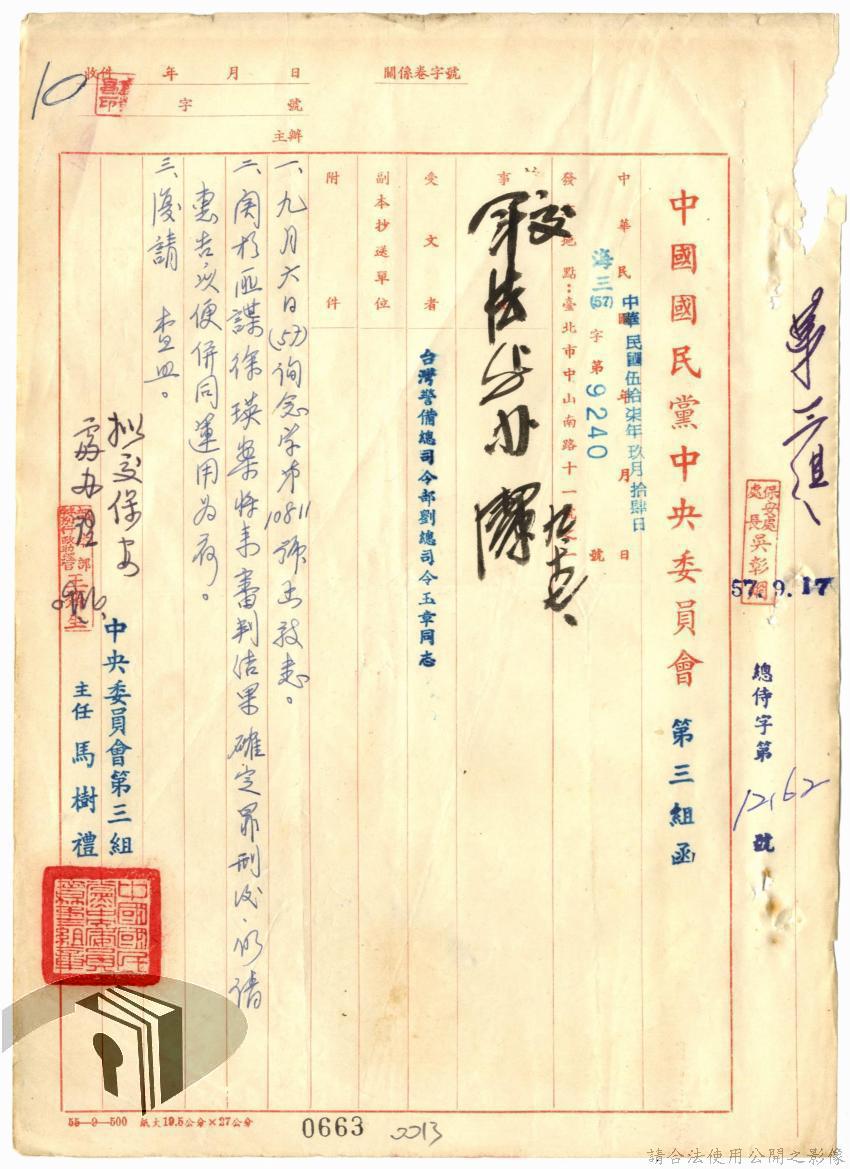 第三組
保安處
處長吳彰炯
57.9.17
總侍字第12162號
中國國民黨中央委員會第三組函
中華民國 年 月 日
中華民國伍拾柒年玖月拾肆日
海三(57)字第9240號
發 地點：臺北市中山南路十一號之一
事
交
軍法處辦
受文者
台灣警備總司令部劉總司令玉章同志
副本抄送單位
附件
一、九月六日(57)詢念字第10811號函敬悉。
二、関於匪諜徐瑛案將來審判結果確定罪刑後，仍請
惠告以便併同運用為荷。
三、復請 查照。
中央委員會第三組
主任 馬樹禮
擬交保安
處辦理
收件 年 月 日
字 號
主辦
關係卷字號
10
55—9—500 紙大19.5公分×27公分
0663
0013
請合法使用公開之影像